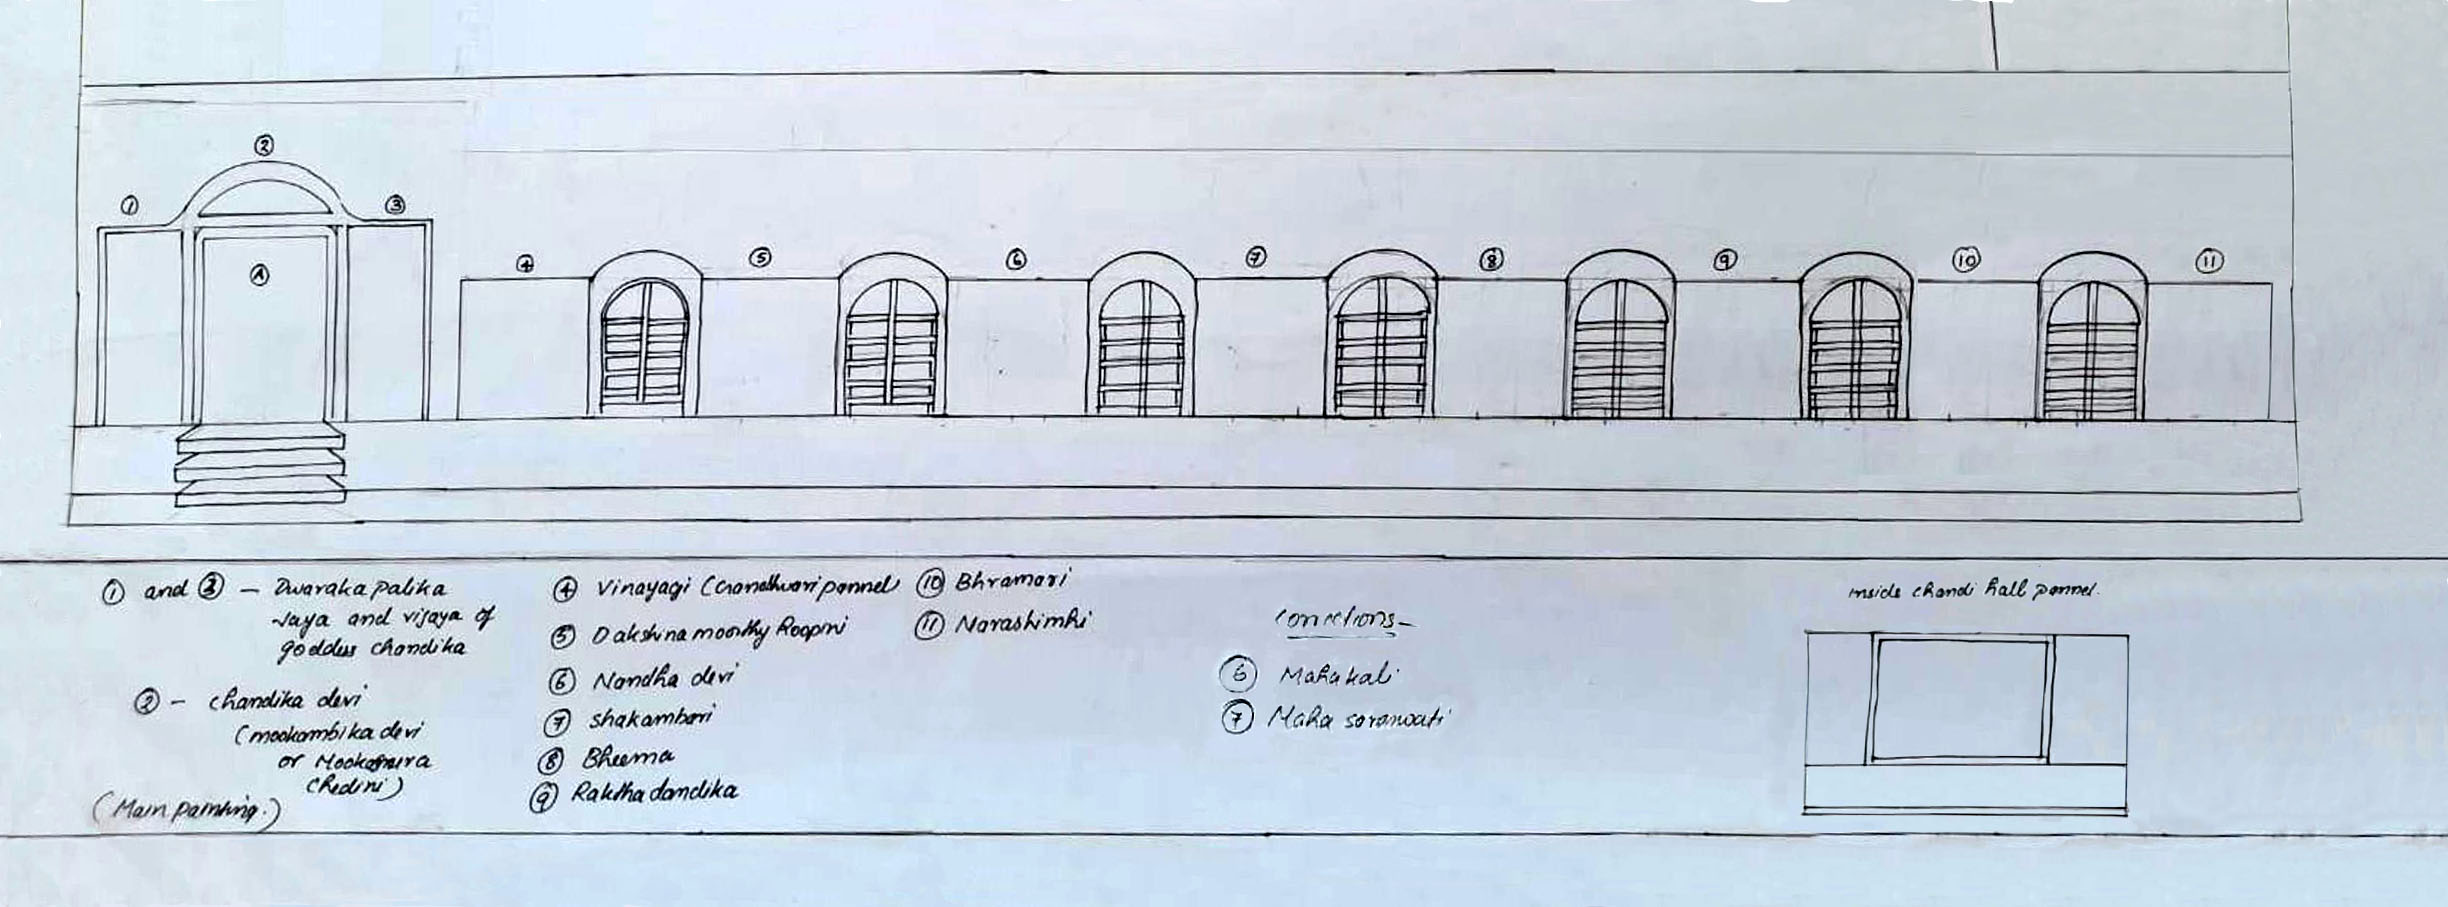 ②
① ③
A
④ ⑤ ⑥ ⑦ ⑧ ⑨ ⑩ ⑪
① and ③ - Dwaraka palika
Jaya and vijaya of
goddess chandika
② - chandika devi
(mookambika devi
or Mookasura
Chedini)
(Main painting.)
④ Vinayagi (Gandhwari pannel)
⑤ Dakshina moorthy Roopini
⑥ Nandha devi
⑦ shakambari
⑧ Bheema
⑨ Raktha dandika
⑩ Bhramari
⑪ Narashimhi
corrections-
⑥ Maha kali
⑦ Maha saraswati
inside chandi hall pannel.